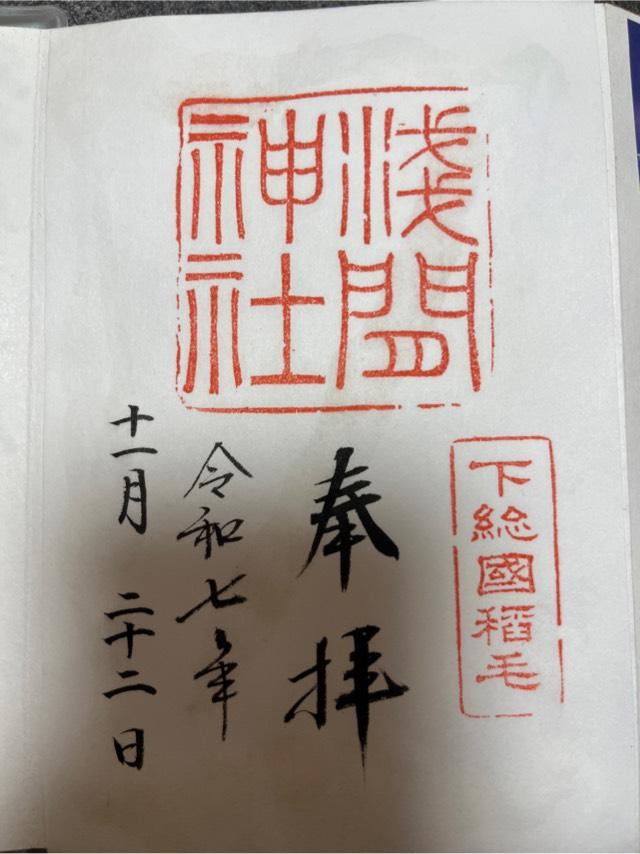 浅間
神社
下総國稻毛
奉拝
令和七年
十一月 二十二日